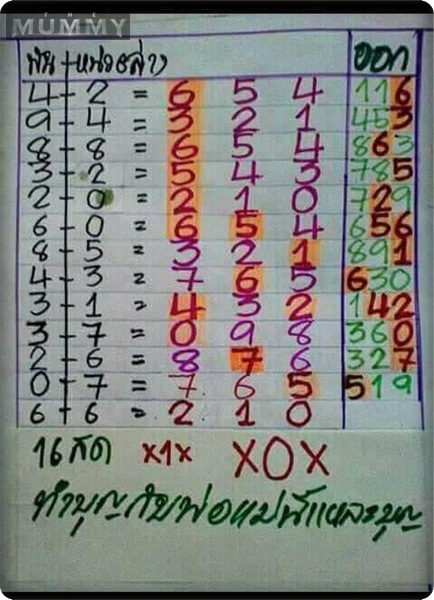 MUMMY
พัน+หน่วยล่าง ออก
4-2 = 6 5 4 116
9-4 = 3 2 1 453
8-8 = 6 5 4 863
3-2 = 5 4 3 785
2-0 = 2 1 0 729
6-0 = 6 5 4 656
8-5 = 3 2 1 891
4-3 = 7 6 5 630
3-1 = 4 3 2 142
3-7 = 0 9 8 360
2-6 = 8 7 6 327
0-7 = 7 6 5 519
6-6 = 2 1 0
16 สด x1x x0x
ทำบุญกับพ่อแม่นี่แหละบุญ